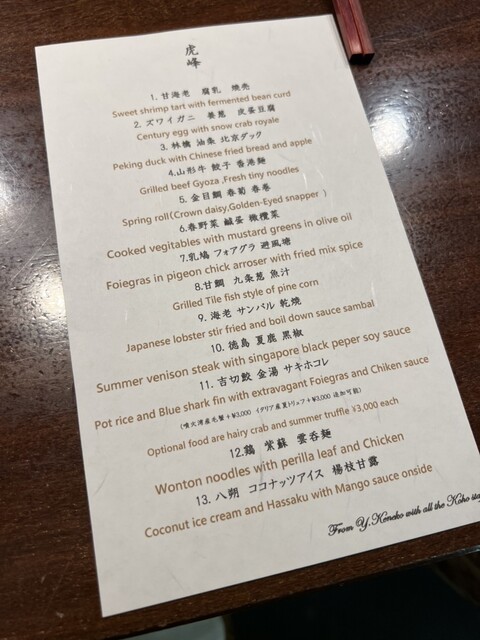 虎
峰
1. 甘海老 腐乳 焼売
Sweet shrimp tart with fermented bean curd
2. ズワイガニ 葱 皮蛋豆腐
Century egg with snow crab royale
3. 林檎 油条 北京ダック
Peking duck with Chinese fried bread and apple
4.山形牛 餃子 香港麺
Grilled beef Gyoza ,Fresh tiny noodles
5. 金目鯛 春菊 春巻
Spring roll(Crown daisy,Golden-Eyed snapper )
6.春野菜 鹹蛋 橄欖菜
Cooked vegitables with mustard greens in olive oil
7.乳鳩 フォアグラ 避風塘
Foiegras in pigeon chick arroser with fried mix spice
8.甘鯛 九条葱 魚汁
Grilled Tile fish style of pine corn
9. 海老 サンバル 乾焼
Japanese lobster stir fried and boil down sauce sambal
10. 徳島 夏鹿 黒椒
Summer venison steak with singapore black peper soy sauce
11. 吉切鮫 金湯 サキホコレ
Pot rice and Blue shark fin with extravagant Foiegras and Chiken sauce
(噴火湾産毛蟹+¥3,000 イタリア産夏トリュフ+¥3,000 追加可能)
Optional food are hairy crab and summer truffle ¥3,000 each
12.鶏 紫蘇 雲呑麺
Wonton noodles with perilla leaf and Chicken
13. 八朔 ココナッツアイス 楊枝甘露
Coconut ice cream and Hassaku with Mango sauce onside
From Y.Keneko with all the Koho sta